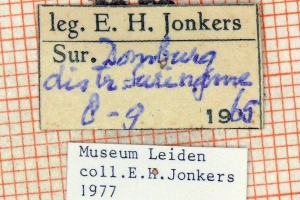 leg. E. H. Jonkers
Sur. Domburg
distr. Suriname
8-9 1965
Museum Leiden
coll.E.H.Jonkers
1977